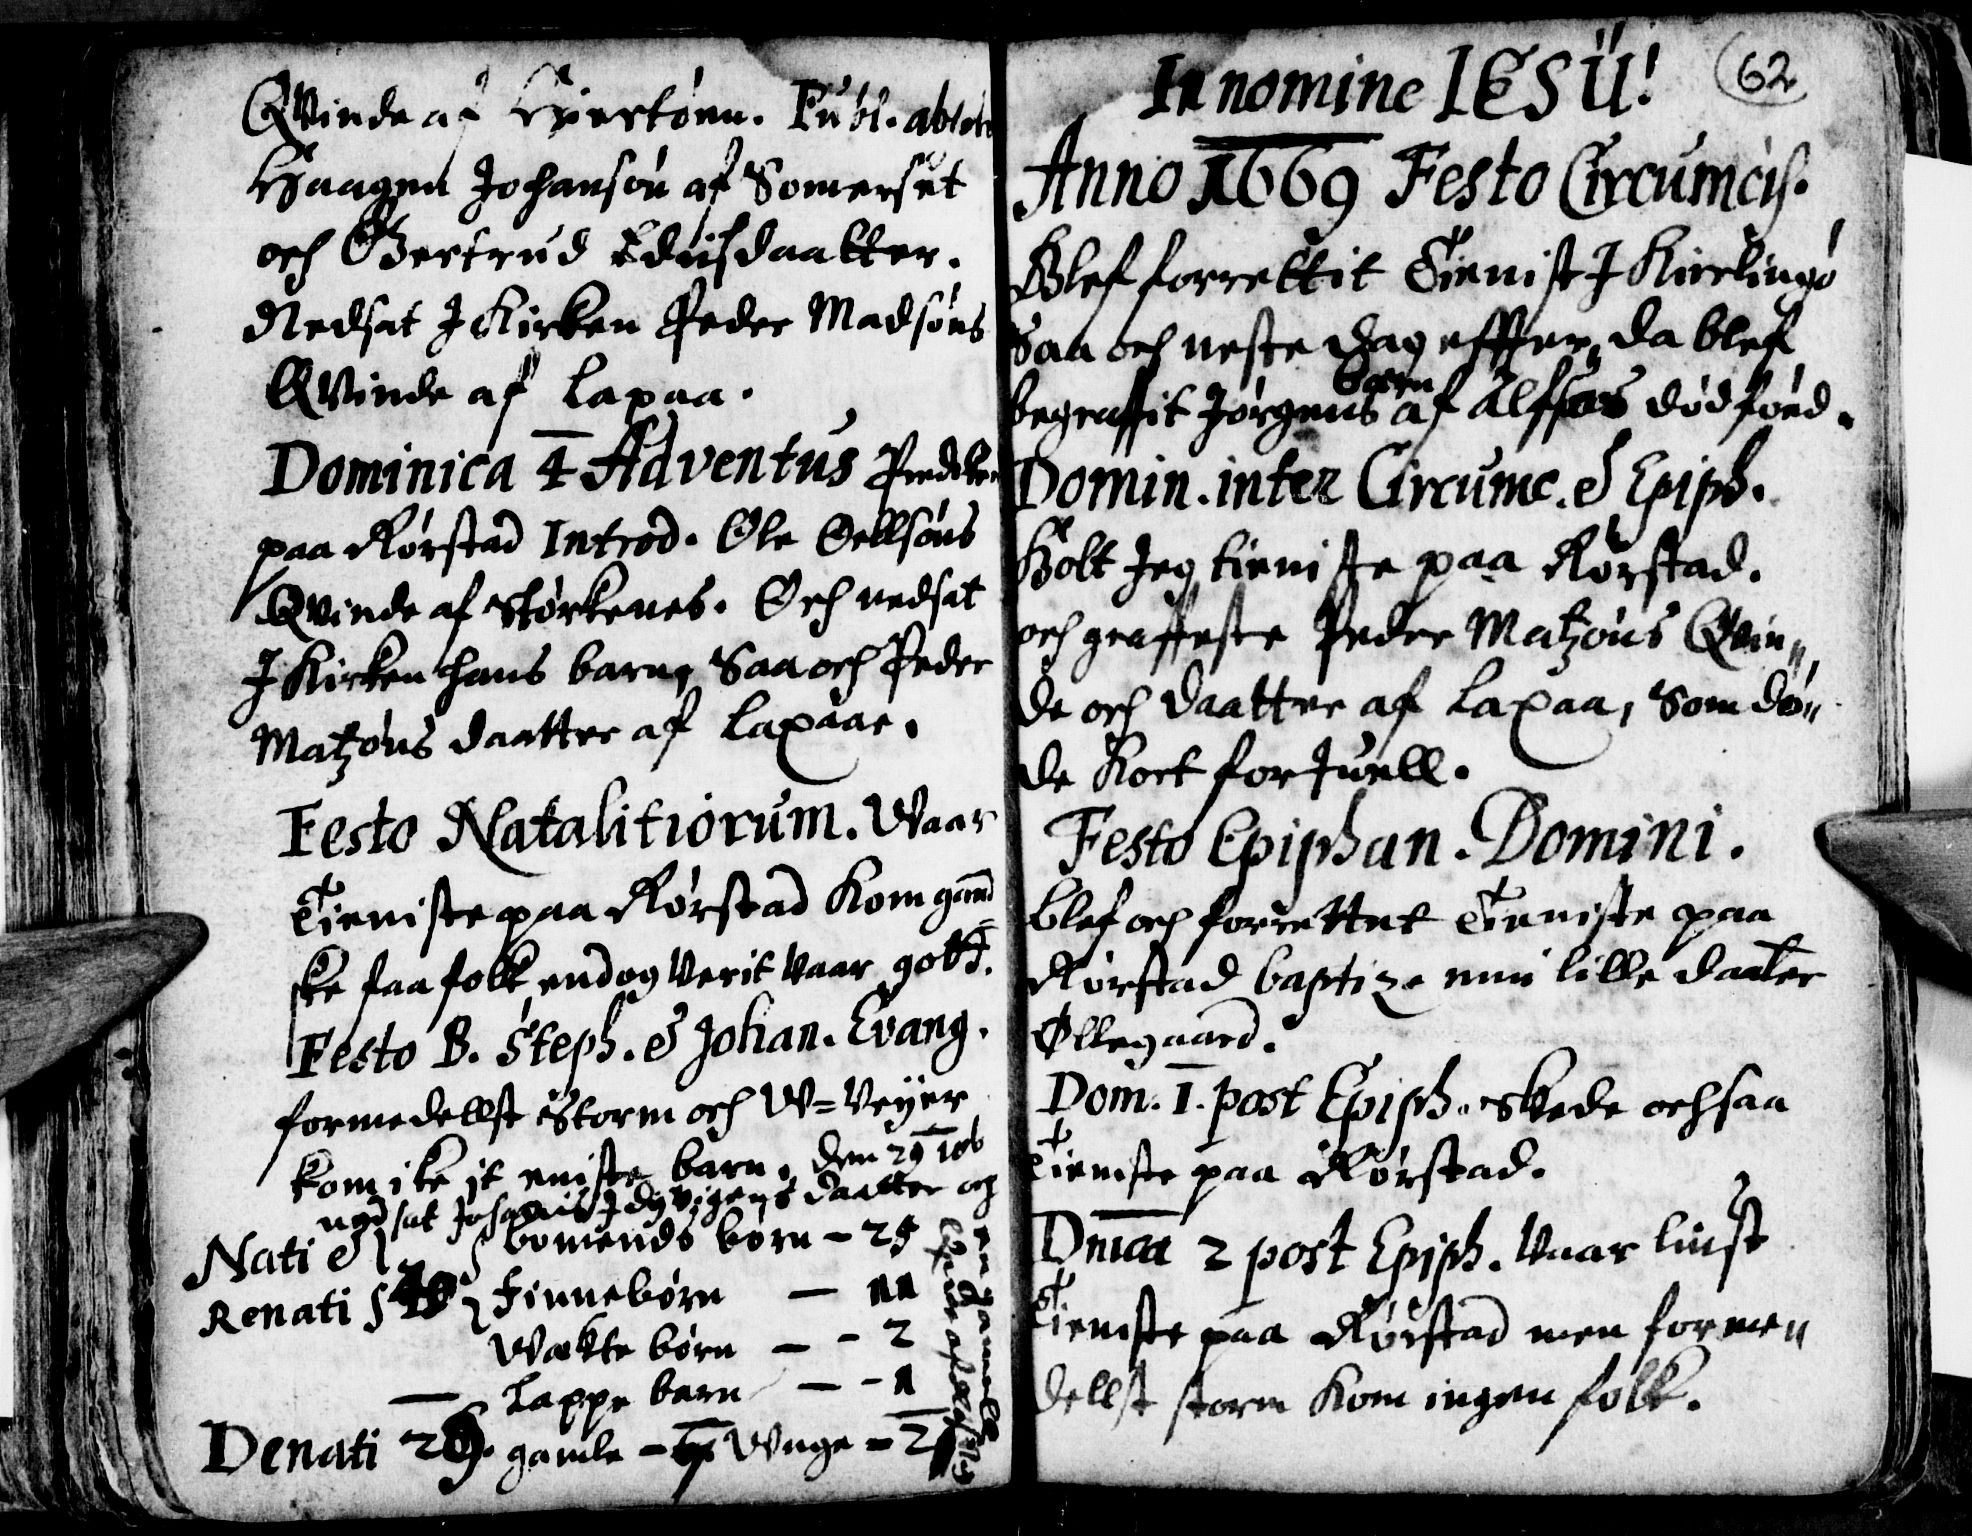 Qvinde af Hiertøen. Publ. absolv
Haagen Johansøn af Somerset
och Giertrud Edisdaatter.
Nedsat J Kirken Peder Madsøns
Qvinde af Laxaa.
Dominica 4 Adventus Predeken
paa Rørstad Introd. Ole Sellsøns
Qvinde af Størkenes. Och nedsat
J Kirken hans barn, Saa och Peder
Matzøns daatter af Laxaae.
Festo Natalitiorum. Waar
Tieniste paa Rørstad Kom gand
ske faa folk, endog Verit Vaar gott.
Festo B. Steph. & Johan. Evang.
formedellst Storm och W=Veyer
kom ike it eniste barn. den 29 10b
nedsat daatter og
en gamell
Nati &
Renati
bomends børn - 25
Finnebørn — 11
Wække børn — - 2
Lappe barn — - 1
Denati gamle Wnge
In nomine IESU! 62
Anno 1669 Festo Circumcis.
Blef forrettit Tienist J Kierlingø
Saa och neste dag effter, da blef
begraffit Jørgens barn af Alfsøes død føed.
Domin. inter Circumc. & Epiph.
Holt Jeg tieniste paa Rørstad.
och graffeste Peder Matzøns Qvin„
de och daatter af Laxaa, som dø„
de kort for Juell.
Festo Epiphan. Domini.
blef och forrettet Tieniste paa
Rørstad baptize. min lille daatter
Øllegaard.
Dom. 1. post Epiph. skede ochsaa
Tieniste paa Rørstad.
Dnica 2 post Epiph. Vaar liust
Tieniste paa Rørstad men forme„
dellst storm kom ingen folk.